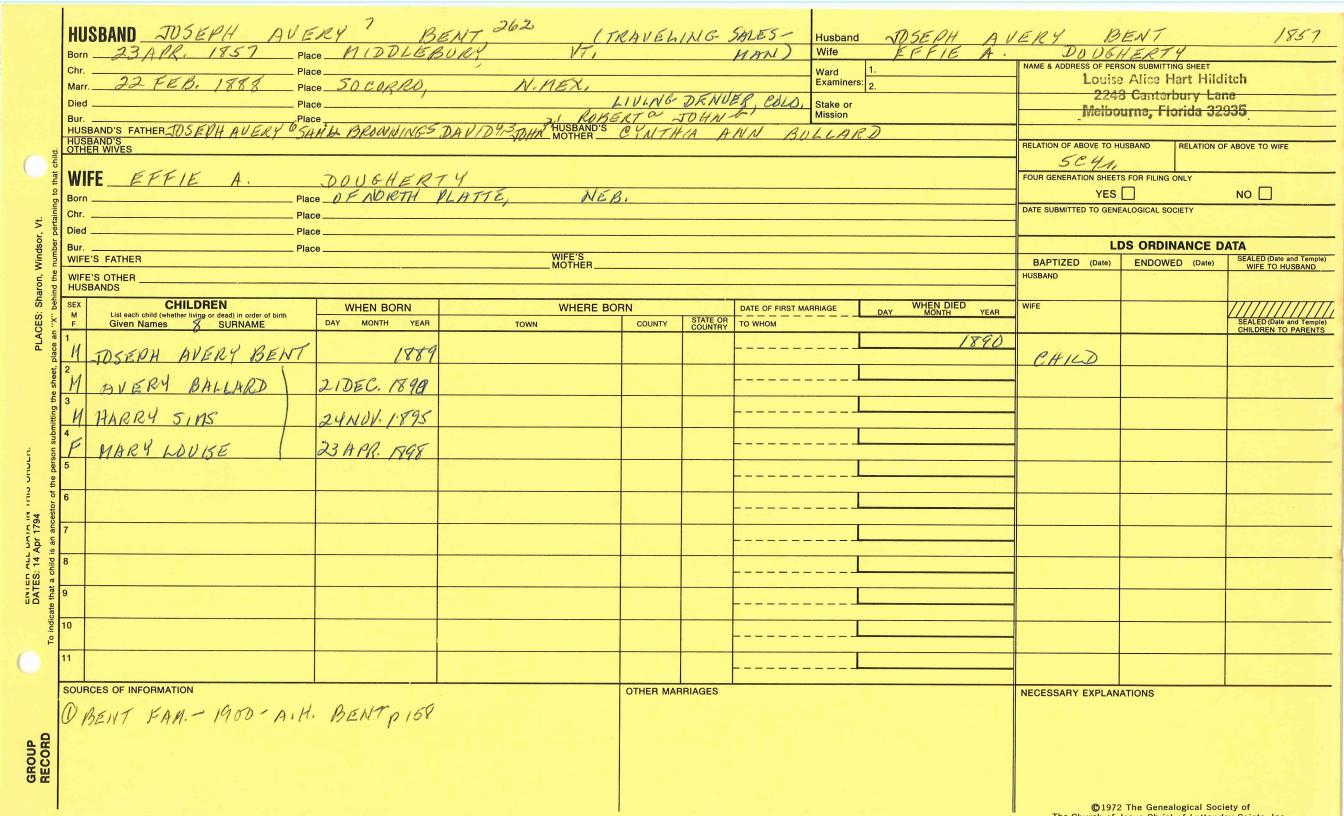 HUSBAND JOSEPH AVERY 7 BENT 262 (TRAVELING SALES-
Born 23 APR. 1857 Place MIDDLEBURY, VT. MAN)
Chr. Place
Marr. 22 FEB. 1888 Place SOCORRO, N.MEX.
Died Place LIVING DENVER, COLO.
Bur. Place ROBERT JOHN
HUSBAND'S FATHER JOSEPH AVERY 6 BROWNING5 DAVID JOHN HUSBAND'S MOTHER CYNTHIA ANN BULLARD
HUSBAND'S OTHER WIVES
WIFE EFFIE A. DOUGHERTY
Born Place OF NORTH PLATTE, NEB.
Chr. Place
Died Place
Bur. Place
WIFE'S FATHER WIFE'S MOTHER
WIFE'S OTHER HUSBANDS
Husband JOSEPH AVERY BENT 1857
Wife EFFIE A. DOUGHERTY
Ward Examiners: 1.
2.
Stake or Mission
NAME & ADDRESS OF PERSON SUBMITTING SHEET
Louise Alice Hart Hilditch
2243 Canterbury Lane
Melbourne, Florida 32935
RELATION OF ABOVE TO HUSBAND RELATION OF ABOVE TO WIFE
FOUR GENERATION SHEETS FOR FILING ONLY
YES NO
DATE SUBMITTED TO GENEALOGICAL SOCIETY
LDS ORDINANCE DATA
BAPTIZED (Date) ENDOWED (Date) SEALED (Date and Temple) WIFE TO HUSBAND
HUSBAND
WIFE
SEALED (Date and Temple) CHILDREN TO PARENTS
SEX M F
CHILDREN
List each child (whether living or dead) in order of birth
Given Names 8 SURNAME
WHEN BORN
DAY MONTH YEAR
WHERE BORN
TOWN COUNTY STATE OR COUNTRY
DATE OF FIRST MARRIAGE
TO WHOM
WHEN DIED
DAY MONTH YEAR
1 M JOSEPH AVERY BENT 1889 1890 CHILD
2 M AVERY BALLARD 21 DEC. 1890
3 M HARRY SIMS 24 NOV. 1895
4 F MARY LOUISE 23 APR. 1898
5
6
7
8
9
10
11
SOURCES OF INFORMATION
① BENT FAM. - 1900 - A.H. BENT p 158
OTHER MARRIAGES
NECESSARY EXPLANATIONS
©1972 The Genealogical Society of
PLACES: Sharon, Windsor, Vt.
DATES: 14 Apr 1794
To indicate that a child is an ancestor of the person submitting the sheet, place an "X" behind the number pertaining to that child.
GROUP
RECORD